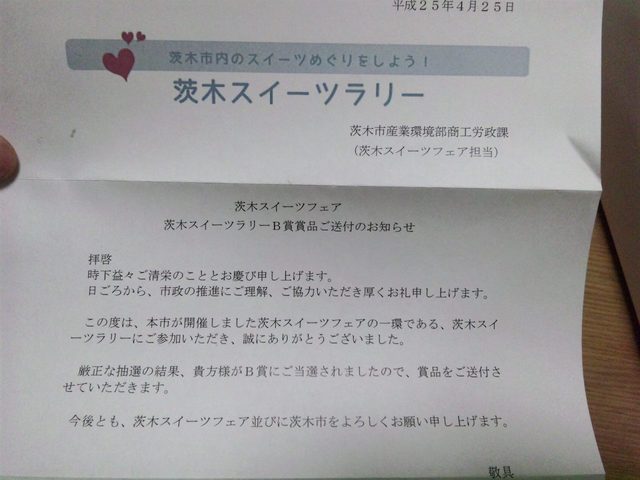 平成２５年４月２５日
茨木市内のスイーツめぐりをしよう！
茨木スイーツラリー
茨木市産業環境部商工労政課
（茨木スイーツフェア担当）
茨木スイーツフェア
茨木スイーツラリーＢ賞賞品ご送付のお知らせ
拝啓
時下益々ご清栄のこととお慶び申し上げます。
日ごろから、市政の推進にご理解、ご協力いただき厚くお礼申し上げます。
この度は、本市が開催しました茨木スイーツフェアの一環である、茨木スイ
ーツラリーにご参加いただき、誠にありがとうございました。
厳正な抽選の結果、貴方様がＢ賞にご当選されましたので、賞品をご送付さ
せていただきます。
今後とも、茨木スイーツフェア並びに茨木市をよろしくお願い申し上げます。
敬具